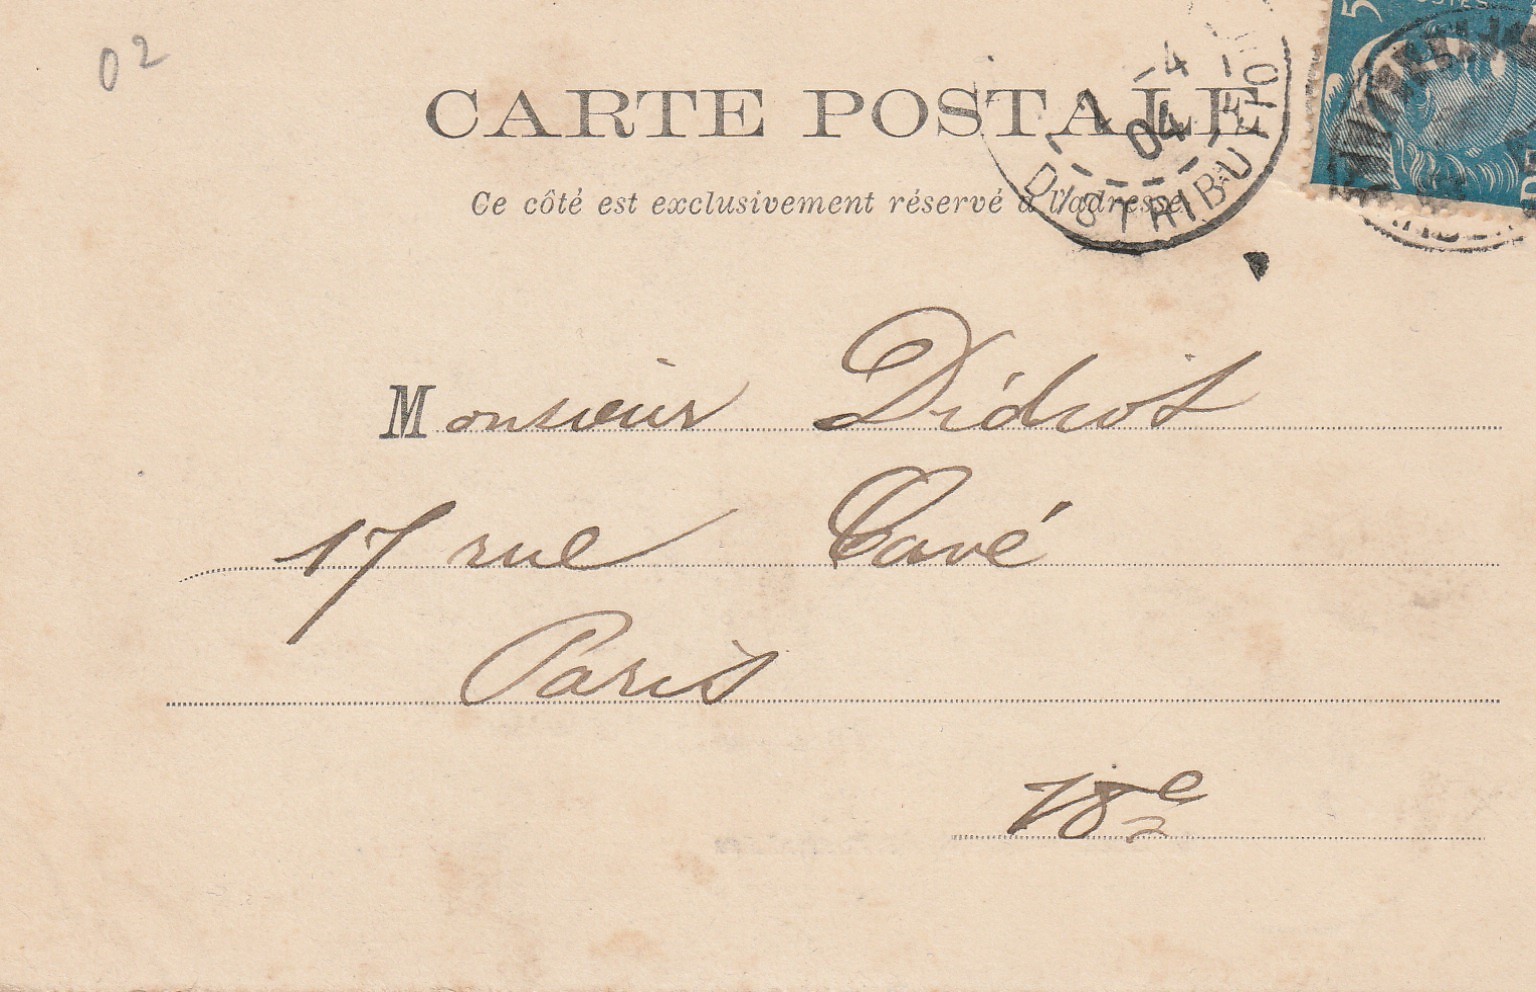 02
CARTE POSTALE
Ce côté est exclusivement réservé à l'adresse
4
04
DISTRIBUTION
5
Monsieur Didrot
17 rue Cavé
Paris
18e